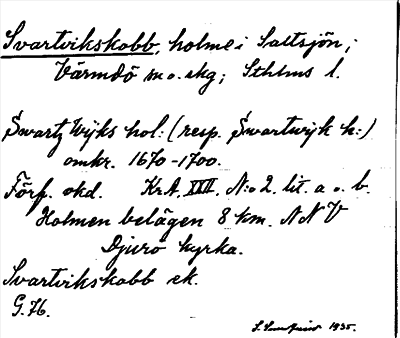 Svartvikskobb, holme i Saltsjön;
Värmdö m o. skg; Sthlms l.
Swartz Wijks hol: (resp. Swartwijk h:)
omkr. 1670-1700.
Förf. okd. Kr.A. XXII. N:o 2. lit. a o. b.
Holmen belägen 8 km. NNV
Djurö kyrka.
Svartvikskobb ek.
G.76.
1935.